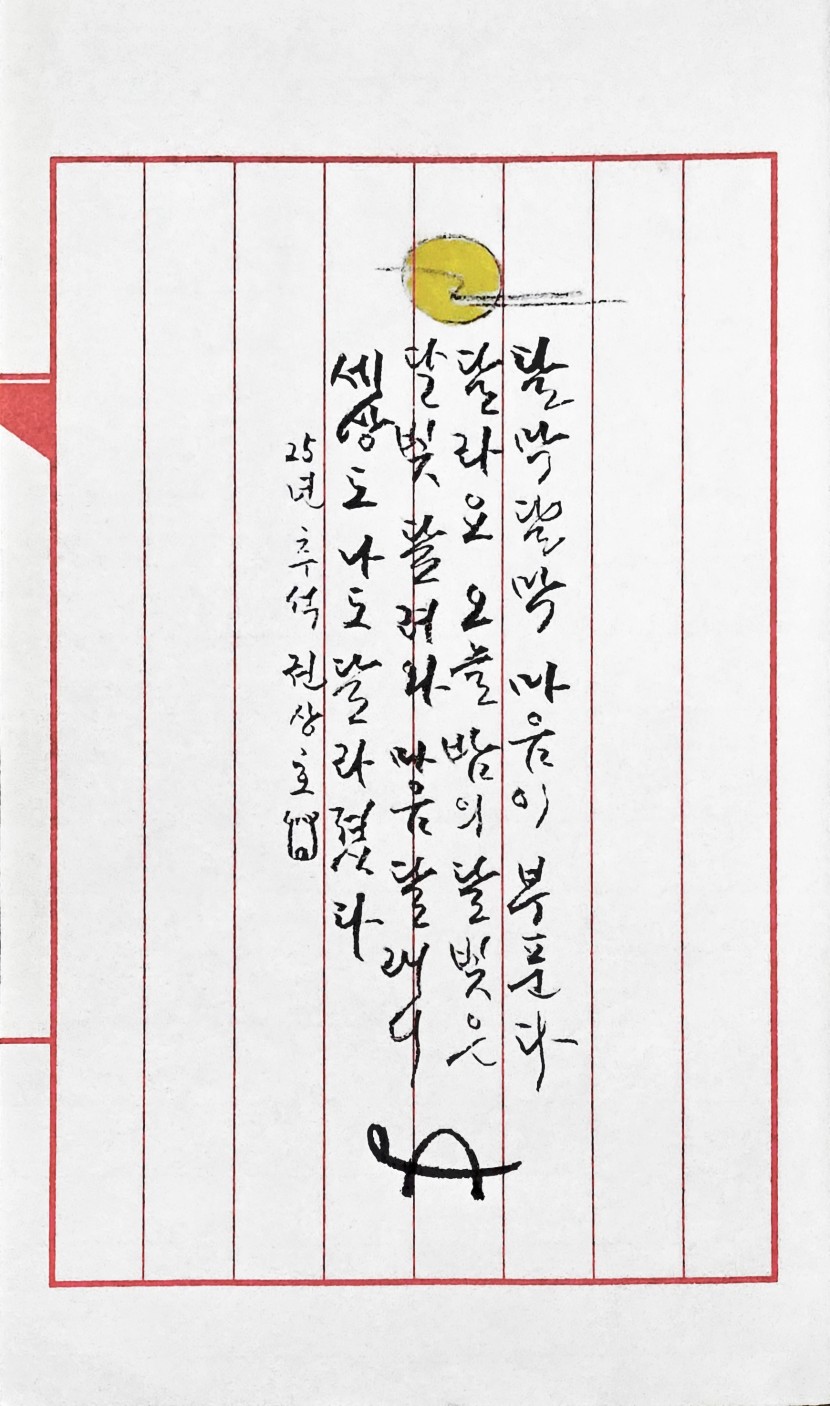 달막달막 마음이 부푼다
달라요 오늘밤의 달빛은
달빛 달려와 마음 달래니
세상도 나도 달라졌다
25년 추석 권상호